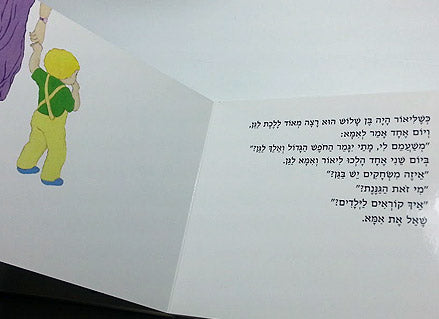 כְּשֶׁלִּיאוֹר הָיָה בֶּן שָׁלוֹשׁ הוּא רָצָה מְאוֹד לָלֶכֶת לַגַּן,
וְיוֹם אֶחָד אָמַר לְאִמָּא:
"מְשַׁעֲמֵם לִי, מָתַי יִגָּמֵר הַחֹפֶשׁ הַגָּדוֹל וְאֵלֵךְ לַגַּן?"
בְּיוֹם שֵׁנִי אֶחָד הָלְכוּ לִיאוֹר וְאִמָּא לַגַּן.
"אֵיזֶה מִשְׂחָקִים יֵשׁ בַּגַּן?"
"מִי זֹאת הַגַּנֶּנֶת?"
"אֵיךְ קוֹרְאִים לַיְּלָדִים?"
שָׁאַל אֶת אִמָּא.